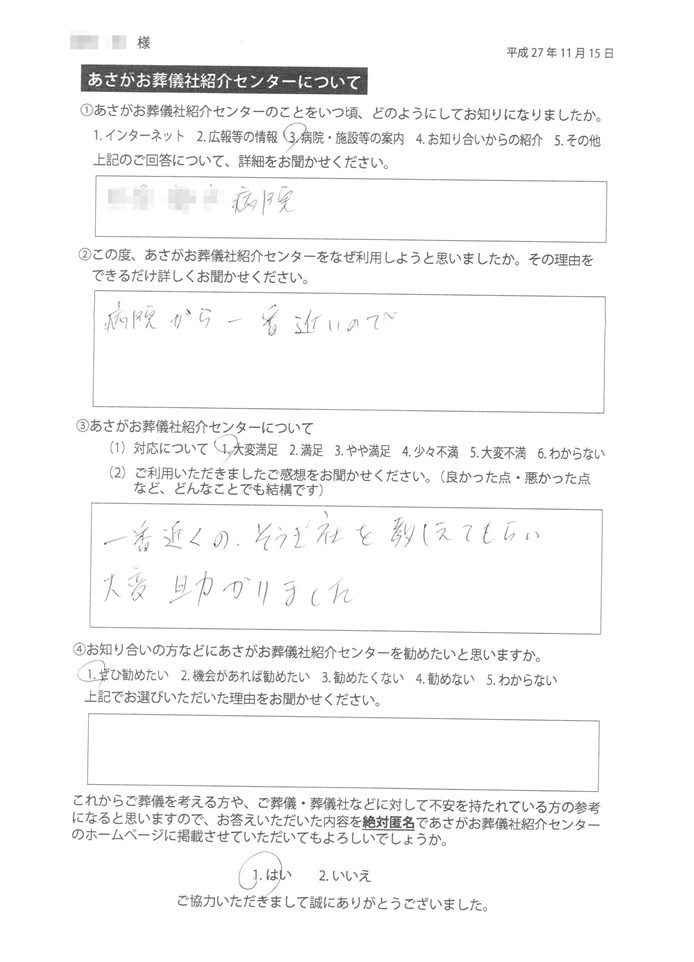 様
平成27年11月15日
あさがお葬儀社紹介センターについて
①あさがお葬儀社紹介センターのことをいつ頃、どのようにしてお知りになりましたか。
1. インターネット 2. 広報等の情報 3. 病院・施設等の案内 4. お知り合いからの紹介 5. その他
上記のご回答について、詳細をお聞かせください。
病院
②この度、あさがお葬儀社紹介センターをなぜ利用しようと思いましたか。その理由を
できるだけ詳しくお聞かせください。
病院から一番近いので
③あさがお葬儀社紹介センターについて
（1）対応について 1. 大変満足 2. 満足 3. やや満足 4. 少々不満 5. 大変不満 6. わからない
（2）ご利用いただきましたご感想をお聞かせください。（良かった点・悪かった点
など、どんなことでも結構です）
一番近くの、そうぎ社を教しえてもらい
大変助かりました
④お知り合いの方などにあさがお葬儀社紹介センターを勧めたいと思いますか。
1. ぜひ勧めたい 2. 機会があれば勧めたい 3. 勧めたくない 4. 勧めない 5. わからない
上記でお選びいただいた理由をお聞かせください。
これからご葬儀を考える方や、ご葬儀・葬儀社などに対して不安を持たれている方の参考
になると思いますので、お答えいただいた内容を絶対匿名であさがお葬儀社紹介センター
のホームページに掲載させていただいてもよろしいでしょうか。
1. はい 2. いいえ
ご協力いただきまして誠にありがとうございました。